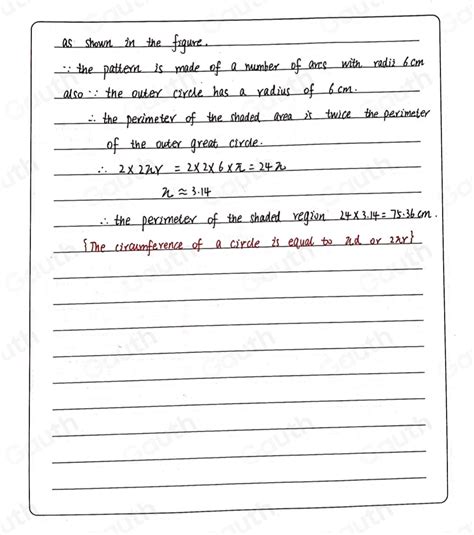 as shown in the figure.
∵ the pattern is made of a number of arcs with radii 6cm
also ∵ the outer circle has a radius of 6cm.
∴ the perimeter of the shaded area is twice the perimeter
of the outer great circle.
∴ 2×2πr = 2×2×6×π = 24π
π ≈ 3.14
∴ the perimeter of the shaded region 24×3.14 = 75.36cm.
{The circumference of a circle is equal to πd or 2πr}
Gauth